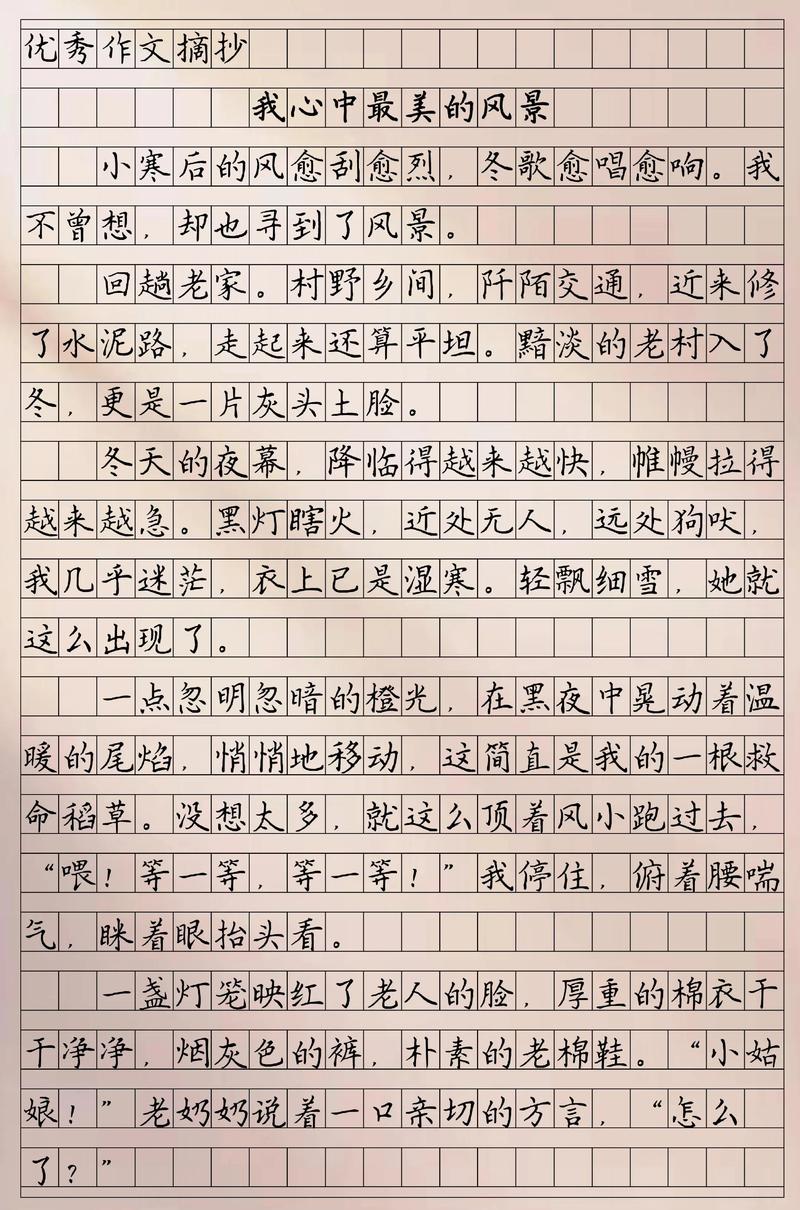 优秀作文摘抄
我心中最美的风景
小寒后的风愈刮愈烈，冬歌愈唱愈响。我
不曾想，却也寻到了风景。
回趟老家。村野乡间，阡陌交通，近来修
了水泥路，走起来还算平坦。黯淡的老村入了
冬，更是一片灰头土脸。
冬天的夜幕，降临得越来越快，帷幔拉得
越来越急。黑灯瞎火，近处无人，远处狗吠，
我几乎迷茫，衣上已是湿寒。轻飘细雪，她就
这么出现了。
一点忽明忽暗的橙光，在黑夜中晃动着温
暖的尾焰，悄悄地移动，这简直是我的一根救
命稻草。没想太多，就这么顶着风小跑过去，
“喂！等一等，等一等！”我停住，俯着腰喘
气，眯着眼抬头看。
一盏灯笼映红了老人的脸，厚重的棉衣干
干净净，烟灰色的裤，朴素的老棉鞋。“小姑
娘！”老奶奶说着一口亲切的方言，“怎么
了？”